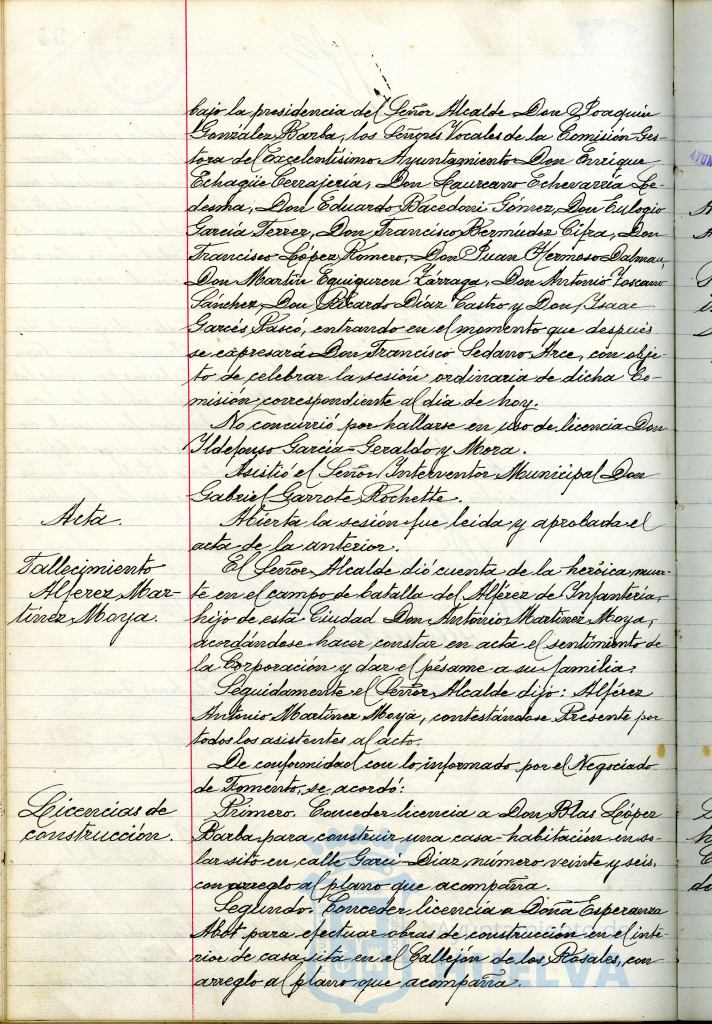 bajo la presidencia del Señor Alcalde Don Joaquin
González Barba, los Señores Vocales de la Comisión Ges-
tora del Excelentísimo Ayuntamiento Don Enrique
Echagüe Cerrajería, Don Laureano Echevarría Le-
desma, Don Eduardo Bacedoni Gómez, Don Eulogio
García Ferrer, Don Francisco Bermúdez Cifra, Don
Francisco López Romero, Don Juan Hermoso Dalmau,
Don Martín Equiguren Zárraga, Don Antonio Toscano
Sánchez, Don Ricardo Díaz Castro y Don Isaac
Garcés Pascó, entrando en el momento que después
se expresará Don Francisco Sedano Arce, con obje-
to de celebrar la sesión ordinaria de dicha Co-
misión correspondiente al día de hoy.
No concurrió por hallarse en uso de licencia Don
Ildefonso García-Geraldo y Mora.
Asistió el Señor Interventor Municipal Don
Gabriel Garrote Rochette.
Acta.
Abierta la sesión fue leida y aprobada el
acta de la anterior.
Fallecimiento
Alférez Mar-
tínez Moya.
El Señor Alcalde dió cuenta de la heróica muer-
te en el campo de batalla del Alférez de Infantería,
hijo de esta Ciudad Don Antonio Martínez Moya,
acordándose hacer constar en acta el sentimiento de
la Corporación y dar el pésame a su familia.
Seguidamente el Señor Alcalde dijo: Alférez
Antonio Martínez Moya, contestándose Presente por
todos los asistentes al acto.
De conformidad con lo informado por el Negociado
de Fomento, se acordó:
Licencias de
construcción.
Primero. Conceder licencia a Don Blas López
Barba para construir una casa-habitación en so-
lar sito en calle Garci-Diaz, número veinte y seis,
con arreglo al plano que acompaña.
Segundo. Conceder licencia a Doña Esperanza
Abot para efectuar obras de construcción en el inte-
rior de casa sita en el Callejón de los Rosales, con
arreglo al plano que acompaña.
Ayuntamiento de
HUELVA